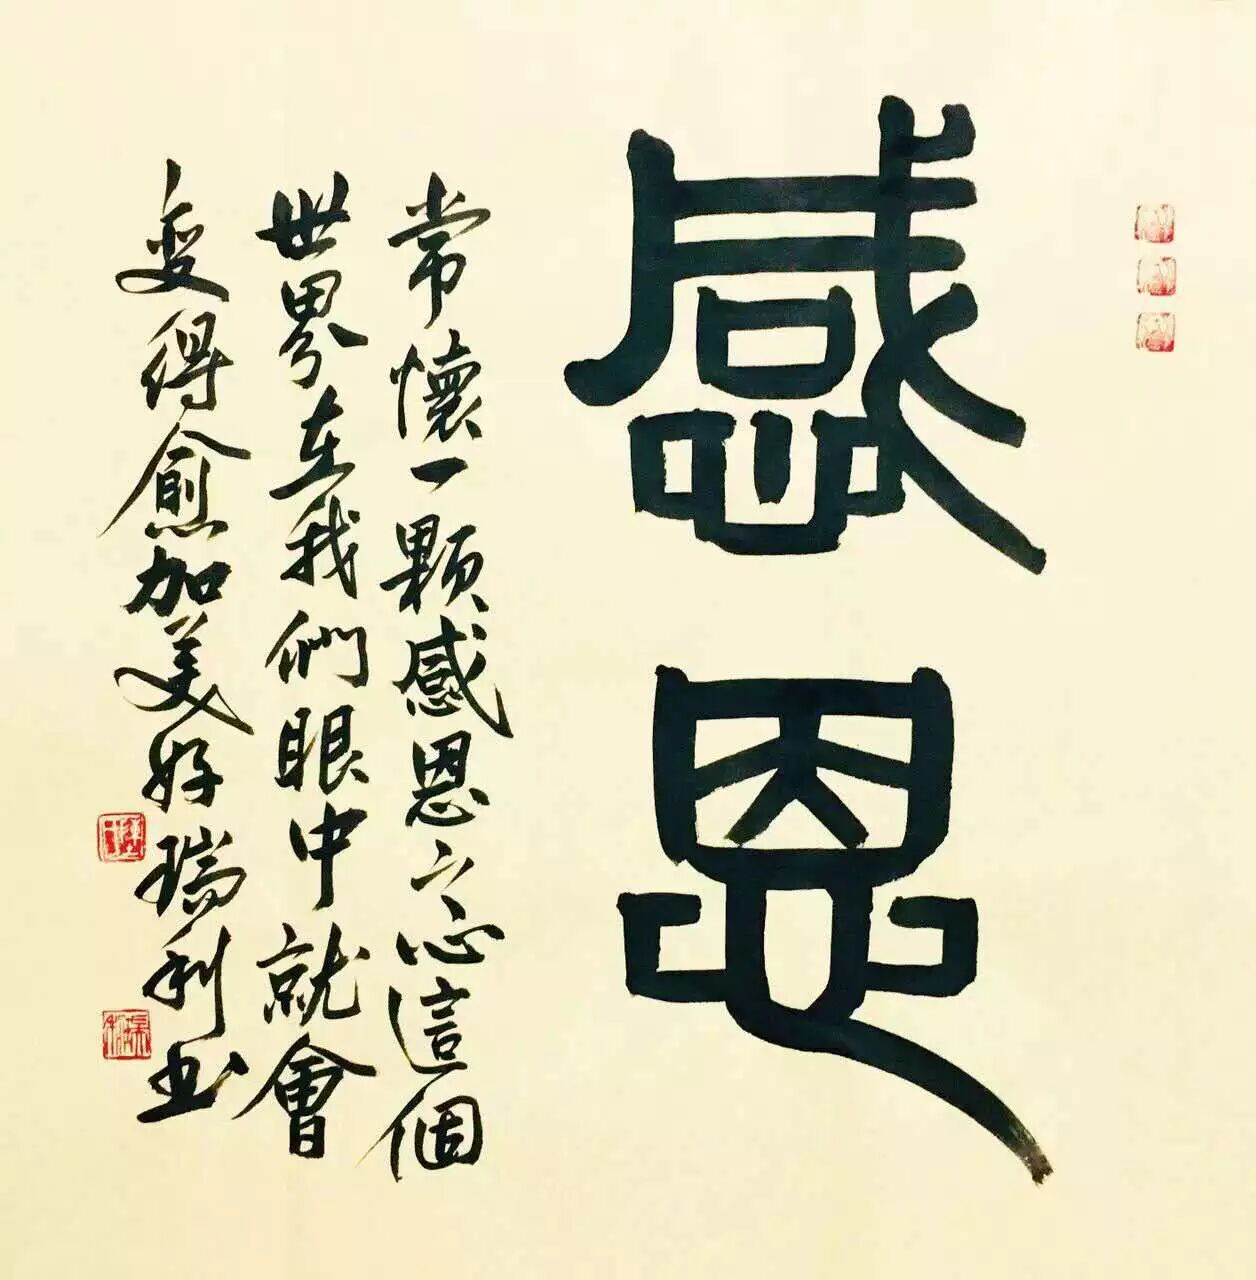 感恩
常懷一顆感恩之心這個
世界在我們眼中就會
变得愈加美好瑞利书